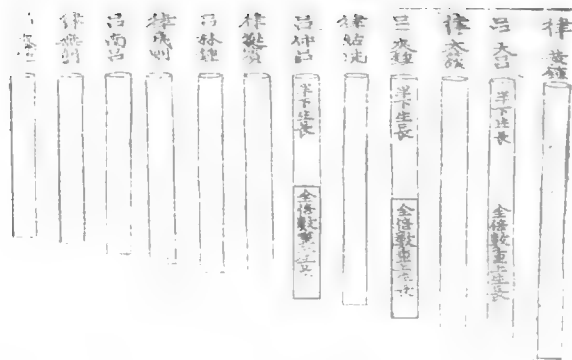 律 黄鐘
呂 大呂
半下生長
全倍數重上生長
律 太蔟
呂 夾鐘
半下生長
全倍數重上生長
律 姑洗
呂 仲呂
半下生長
全倍數重上生長
律 蕤賓
呂 林鐘
律 夷則
呂 南呂
律 無射